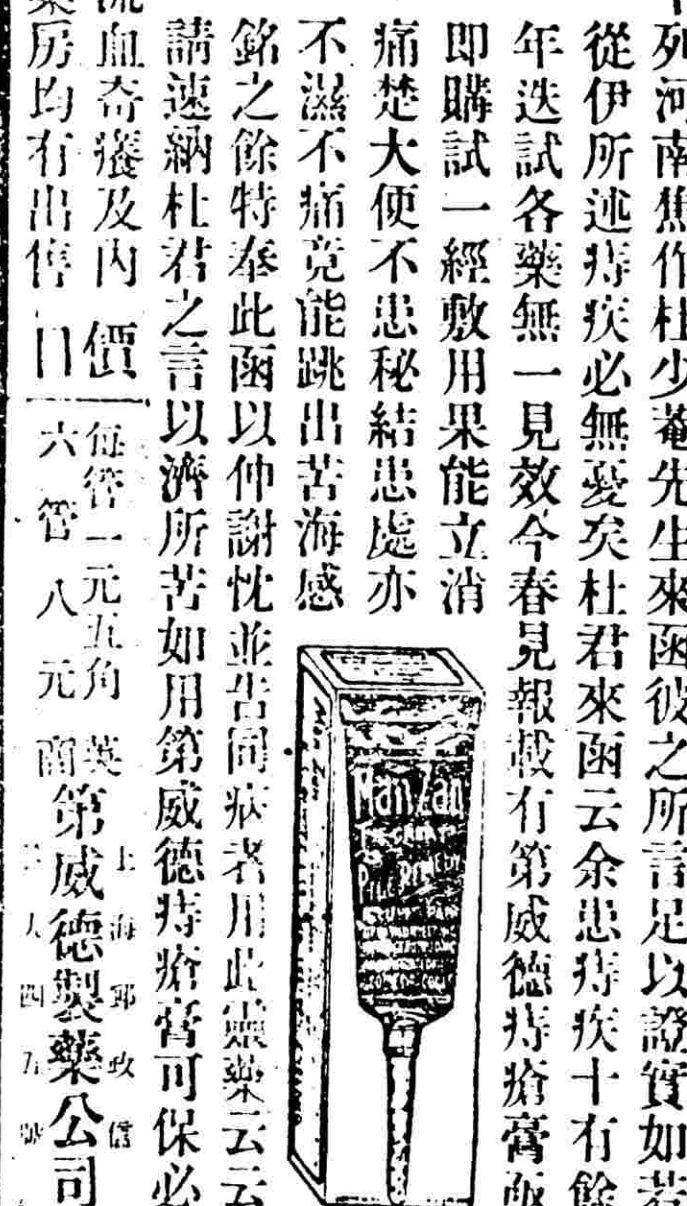 列河南焦作杜少菴先生來函彼之所言足以證實如若
從伊所述痔疾必無憂矣杜君來函云余患痔疾十有餘
年迭試各藥無一見效今春見報載有第威德痔瘡膏
即購試一經敷用果能立消
痛楚大便不患秘結患處亦
不濕不痛竟能跳出苦海感
銘之餘特奉此函以伸謝忱並告同病者用此靈藥云云
請速納杜君之言以濟所苦如用第威德痔瘡膏可保必
流血奇癢及內
房均有出售
價目
每管一元五角
六管八元
英商
第威德製藥公司
上海郵政信
ManZan